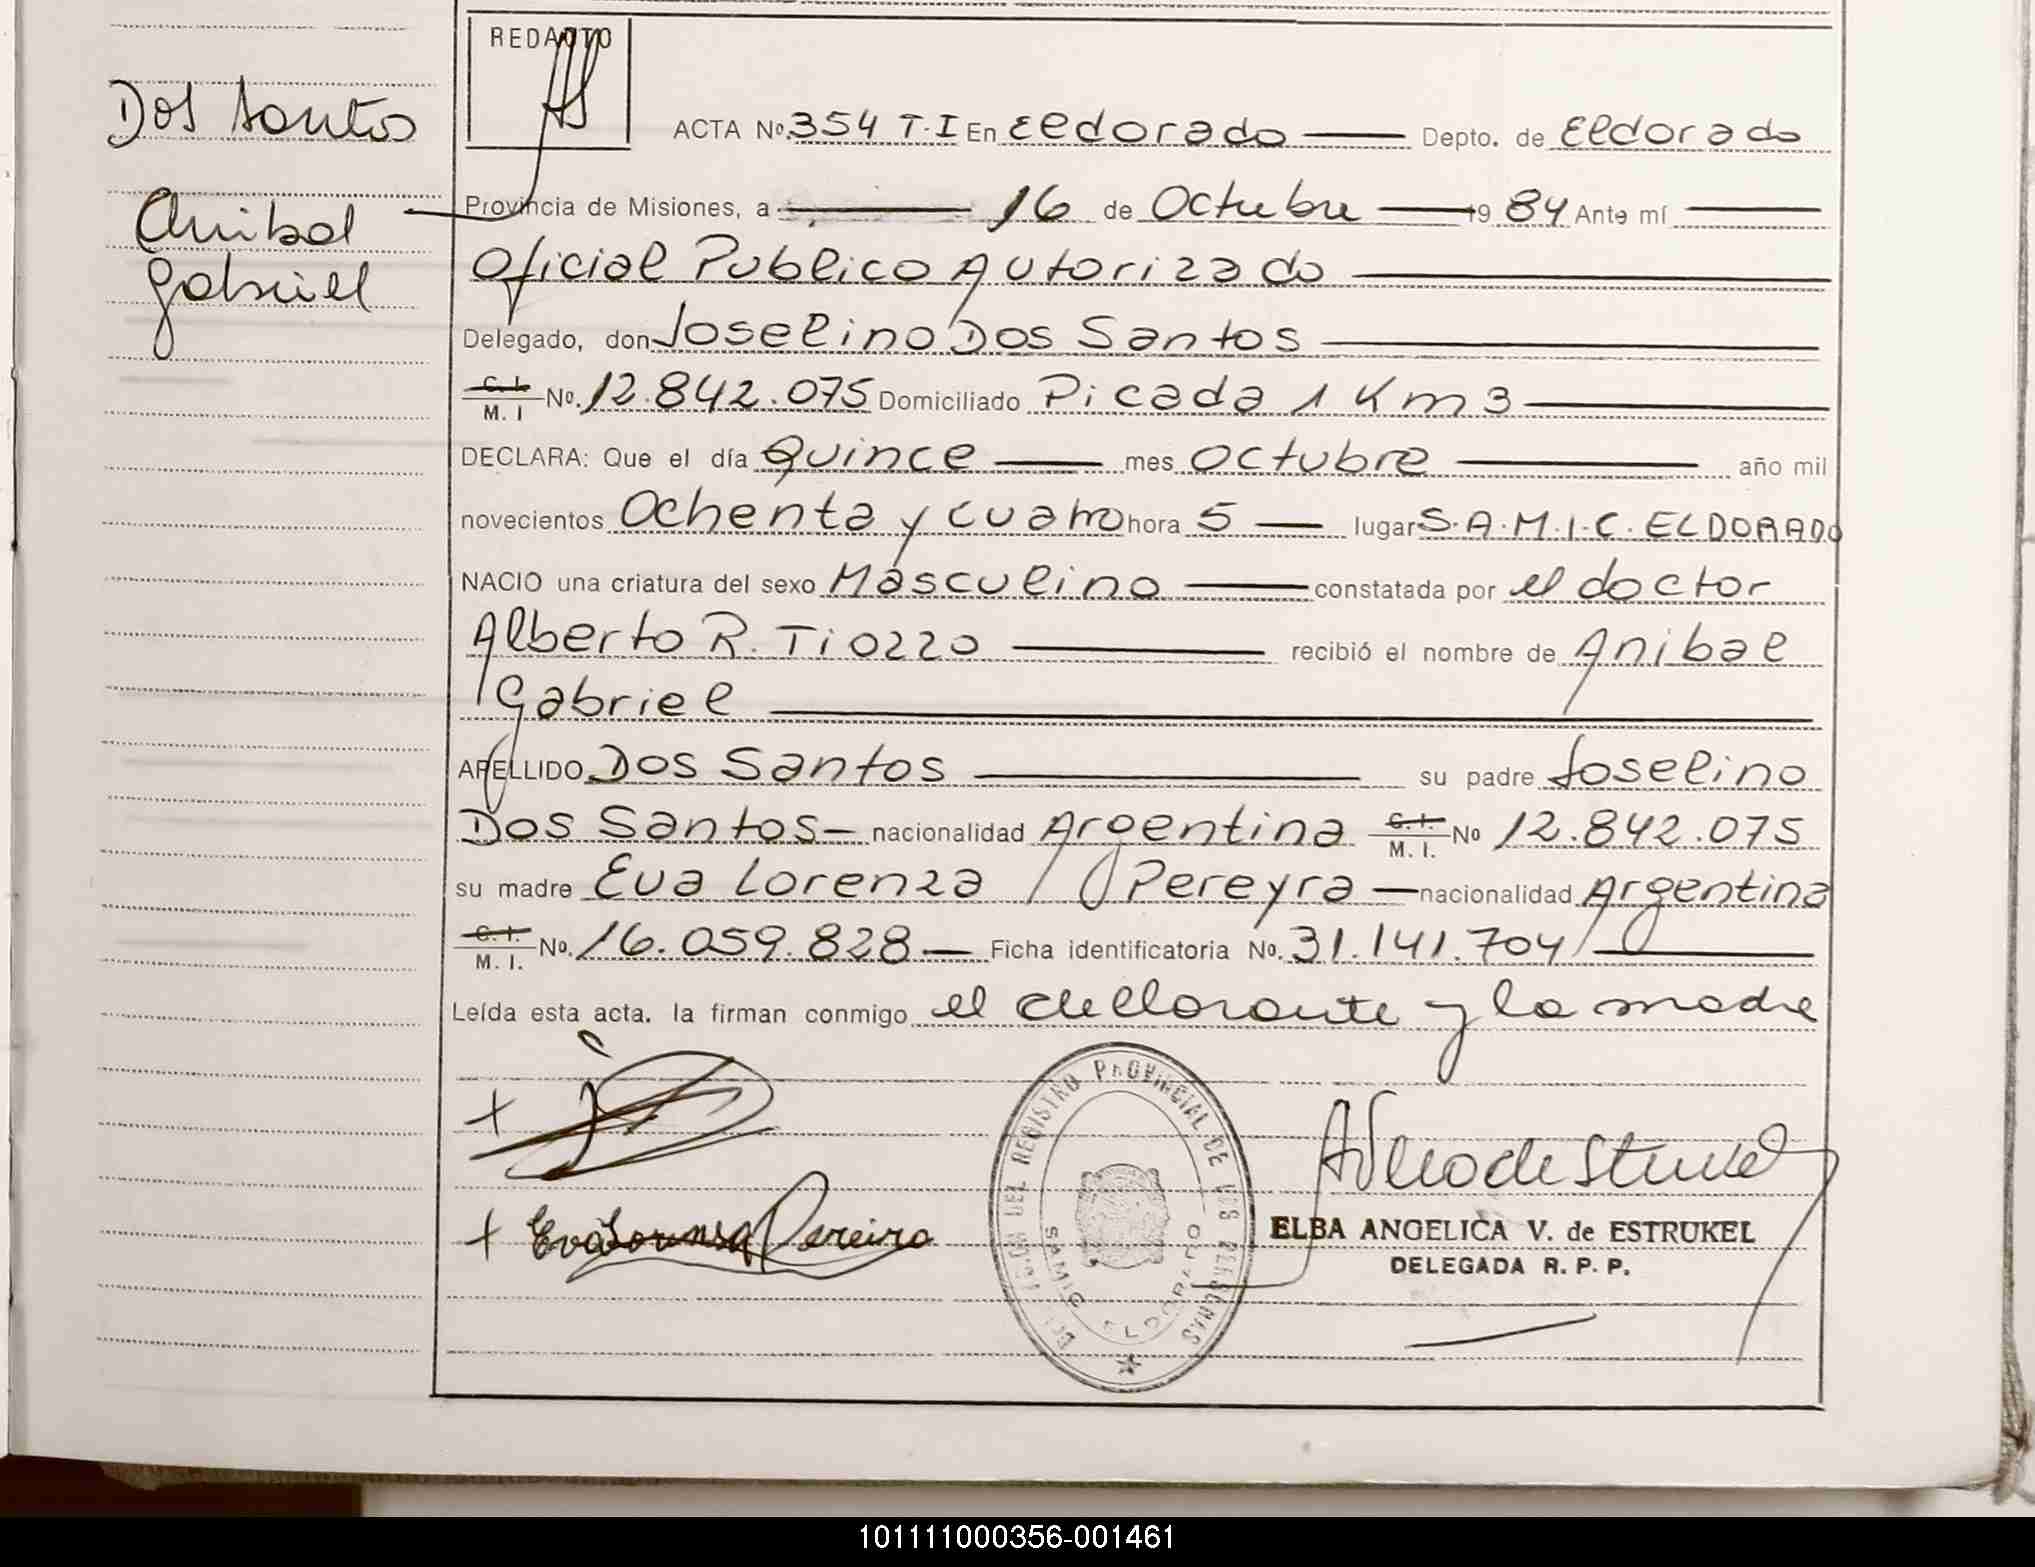 REDACTO
Dos Santos
Anibal
Gabriel
ACTA No. 354 T.I En Eldorado Depto. de Eldorado
Provincia de Misiones, a 16 de Octubre 19 84 Ante mí
Oficial Publico Autorizado
Delegado, don Joselino Dos Santos
C. I. M. I No. 12.842.075 Domiciliado Picada 1 Km 3
DECLARA: Que el día Quince mes Octubre año mil
novecientos Ochenta y cuatro hora 5 lugar S.A.M.I.C. ELDORADO
NACIO una criatura del sexo Masculino constatada por el doctor
Alberto R. Tiozzo recibió el nombre de Anibal
Gabriel
APELLIDO Dos Santos su padre Joselino
Dos Santos nacionalidad Argentina C. I. M. I. No 12.842.075
su madre Eva Lorenza Pereyra nacionalidad Argentina
C. I. M. I. No. 16.059.828 Ficha identificatoria No. 31.141.704
Leída esta acta. la firman conmigo el declarante y la madre
+
+ Eva Lorensa Pereira
DELEGACION DEL REGISTRO PROVINCIAL DE LAS PERSONAS
SAMIC ELDORADO
ELBA ANGELICA V. de ESTRUKEL
DELEGADA R. P. P.
101111000356-001461